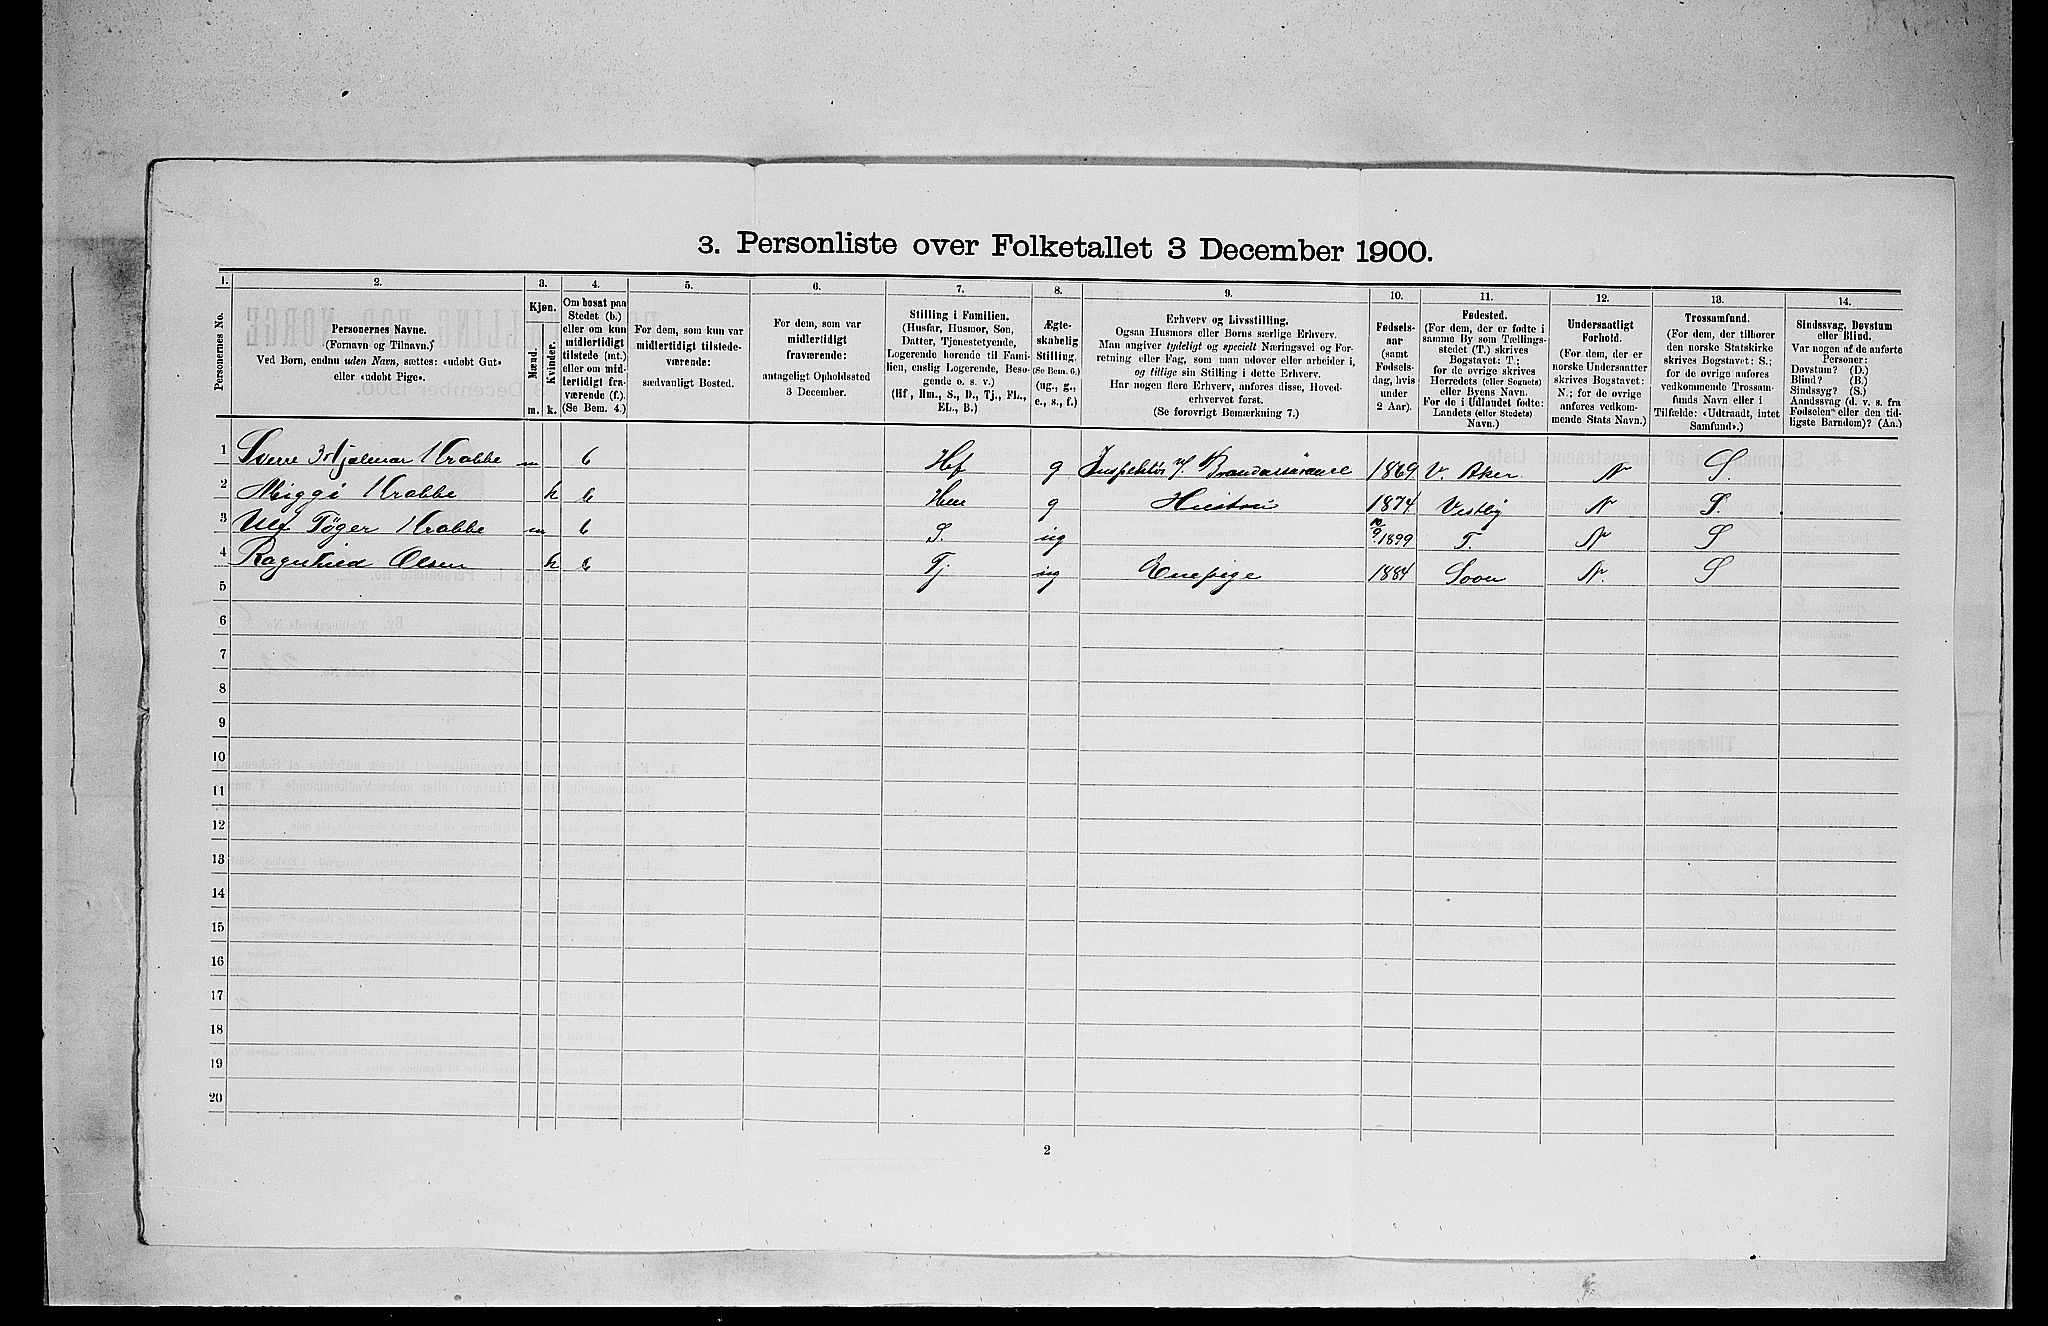 3. Personliste over Folketallet 3 December 1900.
1. 2. 3. 4. 5. 6. 7. 8. 9. 10. 11. 12. 13. 14.
Personernes No.
Personernes Navne.
(Fornavn og Tilnavn.)
Ved Børn, endnu uden Navn, sættes: «udøbt Gut»
eller «udøbt Pige».
Kjøn.
Mænd.
Kvinder.
m. k.
Om bosat paa
Stedet (b.)
eller om kun
midlertidigt
tilstede (mt.)
eller om mid-
lertidigt fra-
værende (f.)
(Se Bem. 4.)
For dem, som kun var
midlertidigt tilstede-
værende:
sædvanligt Bosted.
For dem, som var
midlertidigt
fraværende:
antageligt Opholdssted
3 December.
Stilling i Familien.
(Husfar, Husmor, Søn,
Datter, Tjenestetyende,
Logerende hørende til Fami-
lien, enslig Logerende, Besø-
gende o. s. v.)
(Hf, Hm., S., D., Tj., FL.,
EL., B.)
Ægte-
skabelig
Stilling.
(Se Bem. 6.)
(ug., g.,
e., s., f.)
Erhverv og Livsstilling.
Ogsaa Husmors eller Børns særlige Erhverv.
Man angiver tydeligt og specielt Næringsvei og For-
retning eller Fag, som man udøver eller arbeider i,
og tillige sin Stilling i dette Erhverv.
Har nogen flere Erhverv, anføres disse, Hoved-
erhvervet først.
(Se forøvrigt Bemærkning 7.)
Fødsels-
aar
(samt
Fødsels-
dag, hvis
under
2 Aar).
Fødested.
(For dem, der er fødte i
samme By som Tællings-
stedet (T.) skrives
Bogstavet: T;
for de øvrige skrives
Herredets (eller Sognets)
eller Byens Navn.
For de i Udlandet fødte:
Landets (eller Stedets)
Navn.)
Undersaatligt
Forhold.
(For dem, der er
norske Undersaatter
skrives Bogstavet:
N.; for de øvrige
anføres vedkom-
mende Stats Navn.)
Trossamfund.
(For dem, der tilhører
den norske Statskirke
skrives Bogstavet: S.;
for de øvrige anføres
vedkommende Trossam-
funds Navn eller i
Tilfælde: «Udtraadt, intet
Samfund».)
Sindssvag, Døvstum
eller Blind.
Var nogen af de anførte
Personer:
Døvstum? (D.)
Blind? (B.)
Sindssyg? (S.)
Aandssvag (d. v. s. fra
Fødselen eller den tid-
ligste Barndom)? (Aa.)
1 Sverre Hjalmar Krabbe m b Hf g Inspektør v. Brandassurance 1869 V. Aker N S.
2 Miggi Krabbe k b Hm g Hustru 1874 Vestby N S.
3 Ulf Tøger Krabbe m b S. ug 10/9 1899 T. N S
4 Ragnhild Olsen k b Tj ug Enepige 1884 Soon N. S
5
6
7
8
9
10
11
12
13
14
15
16
17
18
19
20
2